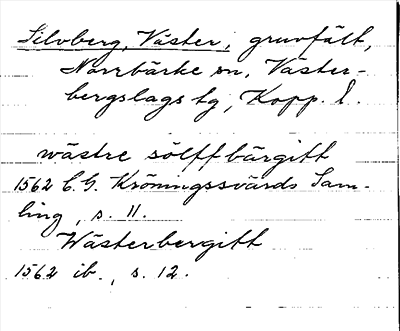 Silvberg, Väster, gruvfält,
Norrbärke sn, Väster-
bergslags tg, Kopp. l.
wästre sölffbärgitt
1562 C. G. Kröningssvärds Sam-
ling, s. 11.
Wästerbergitt
1562 ib., s. 12.